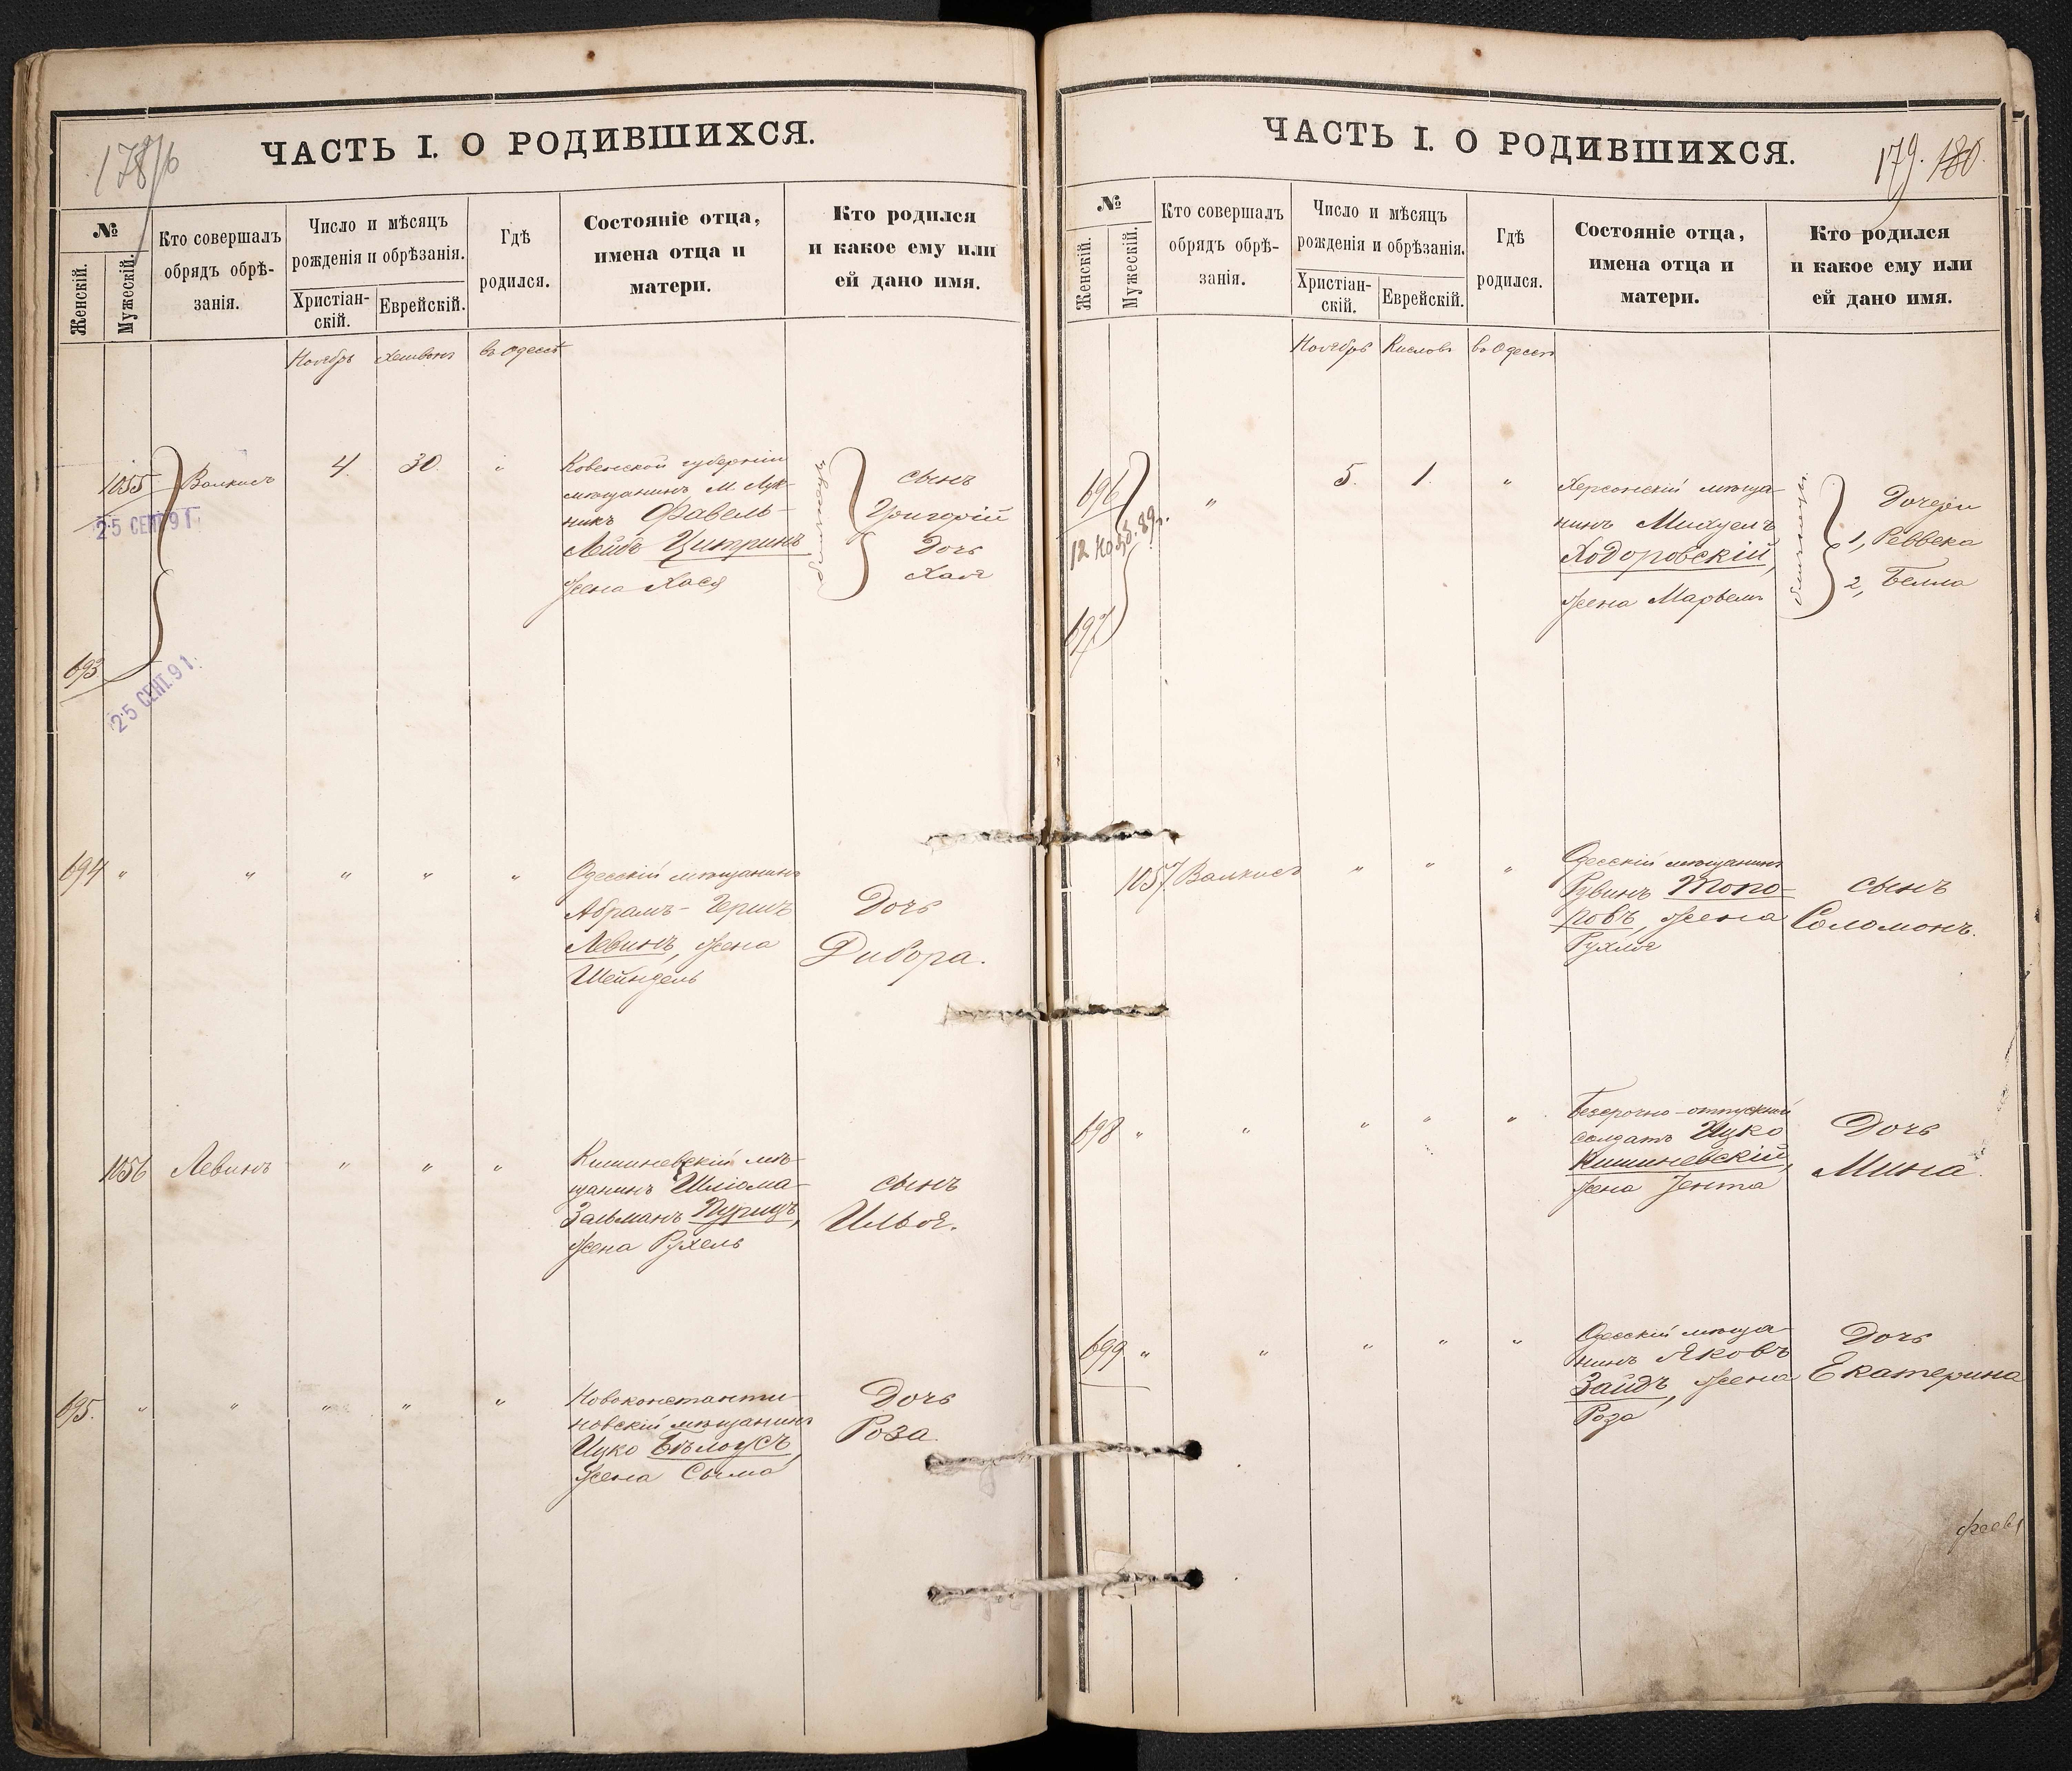 178
ЧАСТЬ I. О РОДИВШИХСЯ.
№
Женскій.
Мужескій.
Кто совершалъ
обрядъ обрѣ-
занія.
Число и мѣсяцъ
рожденія и обрѣзанія.
Христіан-
скій.
Еврейскій.
Гдѣ
родился.
Состояніе отца,
имена отца и
матери.
Кто родился
и какое ему или
ей дано имя.
Ноябрь Хешвонъ въ Одессѣ
1055 Валкисъ 4. 30. "
25 СЕНТ.91.
693
25 СЕНТ.91.
Ковенской губерніи
мѣщанинъ, М. Лук-
никъ Фавель-
Лейбъ Цитринъ
жена Хася
близнецы
сынъ
Григорій
Дочь
Хая
694 " " " " "
Одесскій мѣщанинъ
Абрамъ-Гершъ
Левинъ, жена
Шейндель
Дочь
Дивора.
1056 Левинъ " " "
Кишиневскій мѣ-
щанинъ Шліома-
Зальманъ Пурицъ,
жена Рухель
сынъ
Илья.
695. " " " " "
Новоконстанти-
новскій мѣщанинъ
Ицко Бѣлоусъ,
жена Сыма
Дочь
Роза
ЧАСТЬ I. О РОДИВШИХСЯ.
179. 180.
№
Женскій.
Мужескій.
Кто совершалъ
обрядъ обрѣ-
занія.
Число и мѣсяцъ
рожденія и обрѣзанія.
Христіан-
скій.
Еврейскій.
Гдѣ
родился.
Состояніе отца,
имена отца и
матери.
Кто родился
и какое ему или
ей дано имя.
Ноябрь Кислов въ Одессѣ
696 " 5. 1. "
12 Нояб. 89г.
697
Херсонскій мѣща-
нинъ Михуель
Ходоровскій,
жена Марьемъ
близнецы
Дочери
1, Реввека
2, Белла
1057 Валкисъ " " "
Одесскій мѣщанинъ
Рувинъ Топо-
ровъ, жена
Рухля
сынъ
Соломонъ.
698 " " " " "
Безсрочно-отпускной
солдатъ Ицко
Кишиневскій,
жена Іента
Дочь
Мина.
699 " " " " "
Одесскій мѣща-
нинъ Яковъ
Зайдъ, жена
Роза
Дочь
Екатерина